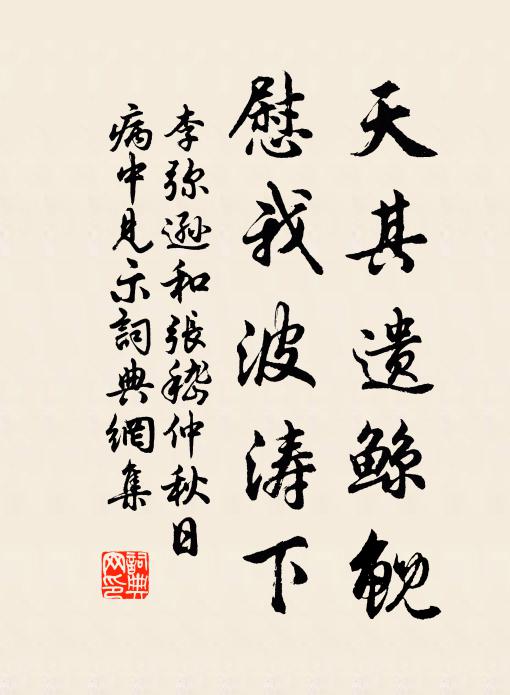 天其遗鲸鲵
慰我波涛下
李弥逊和张嵇仲秋日
病中见示詞典網集
詞典网印